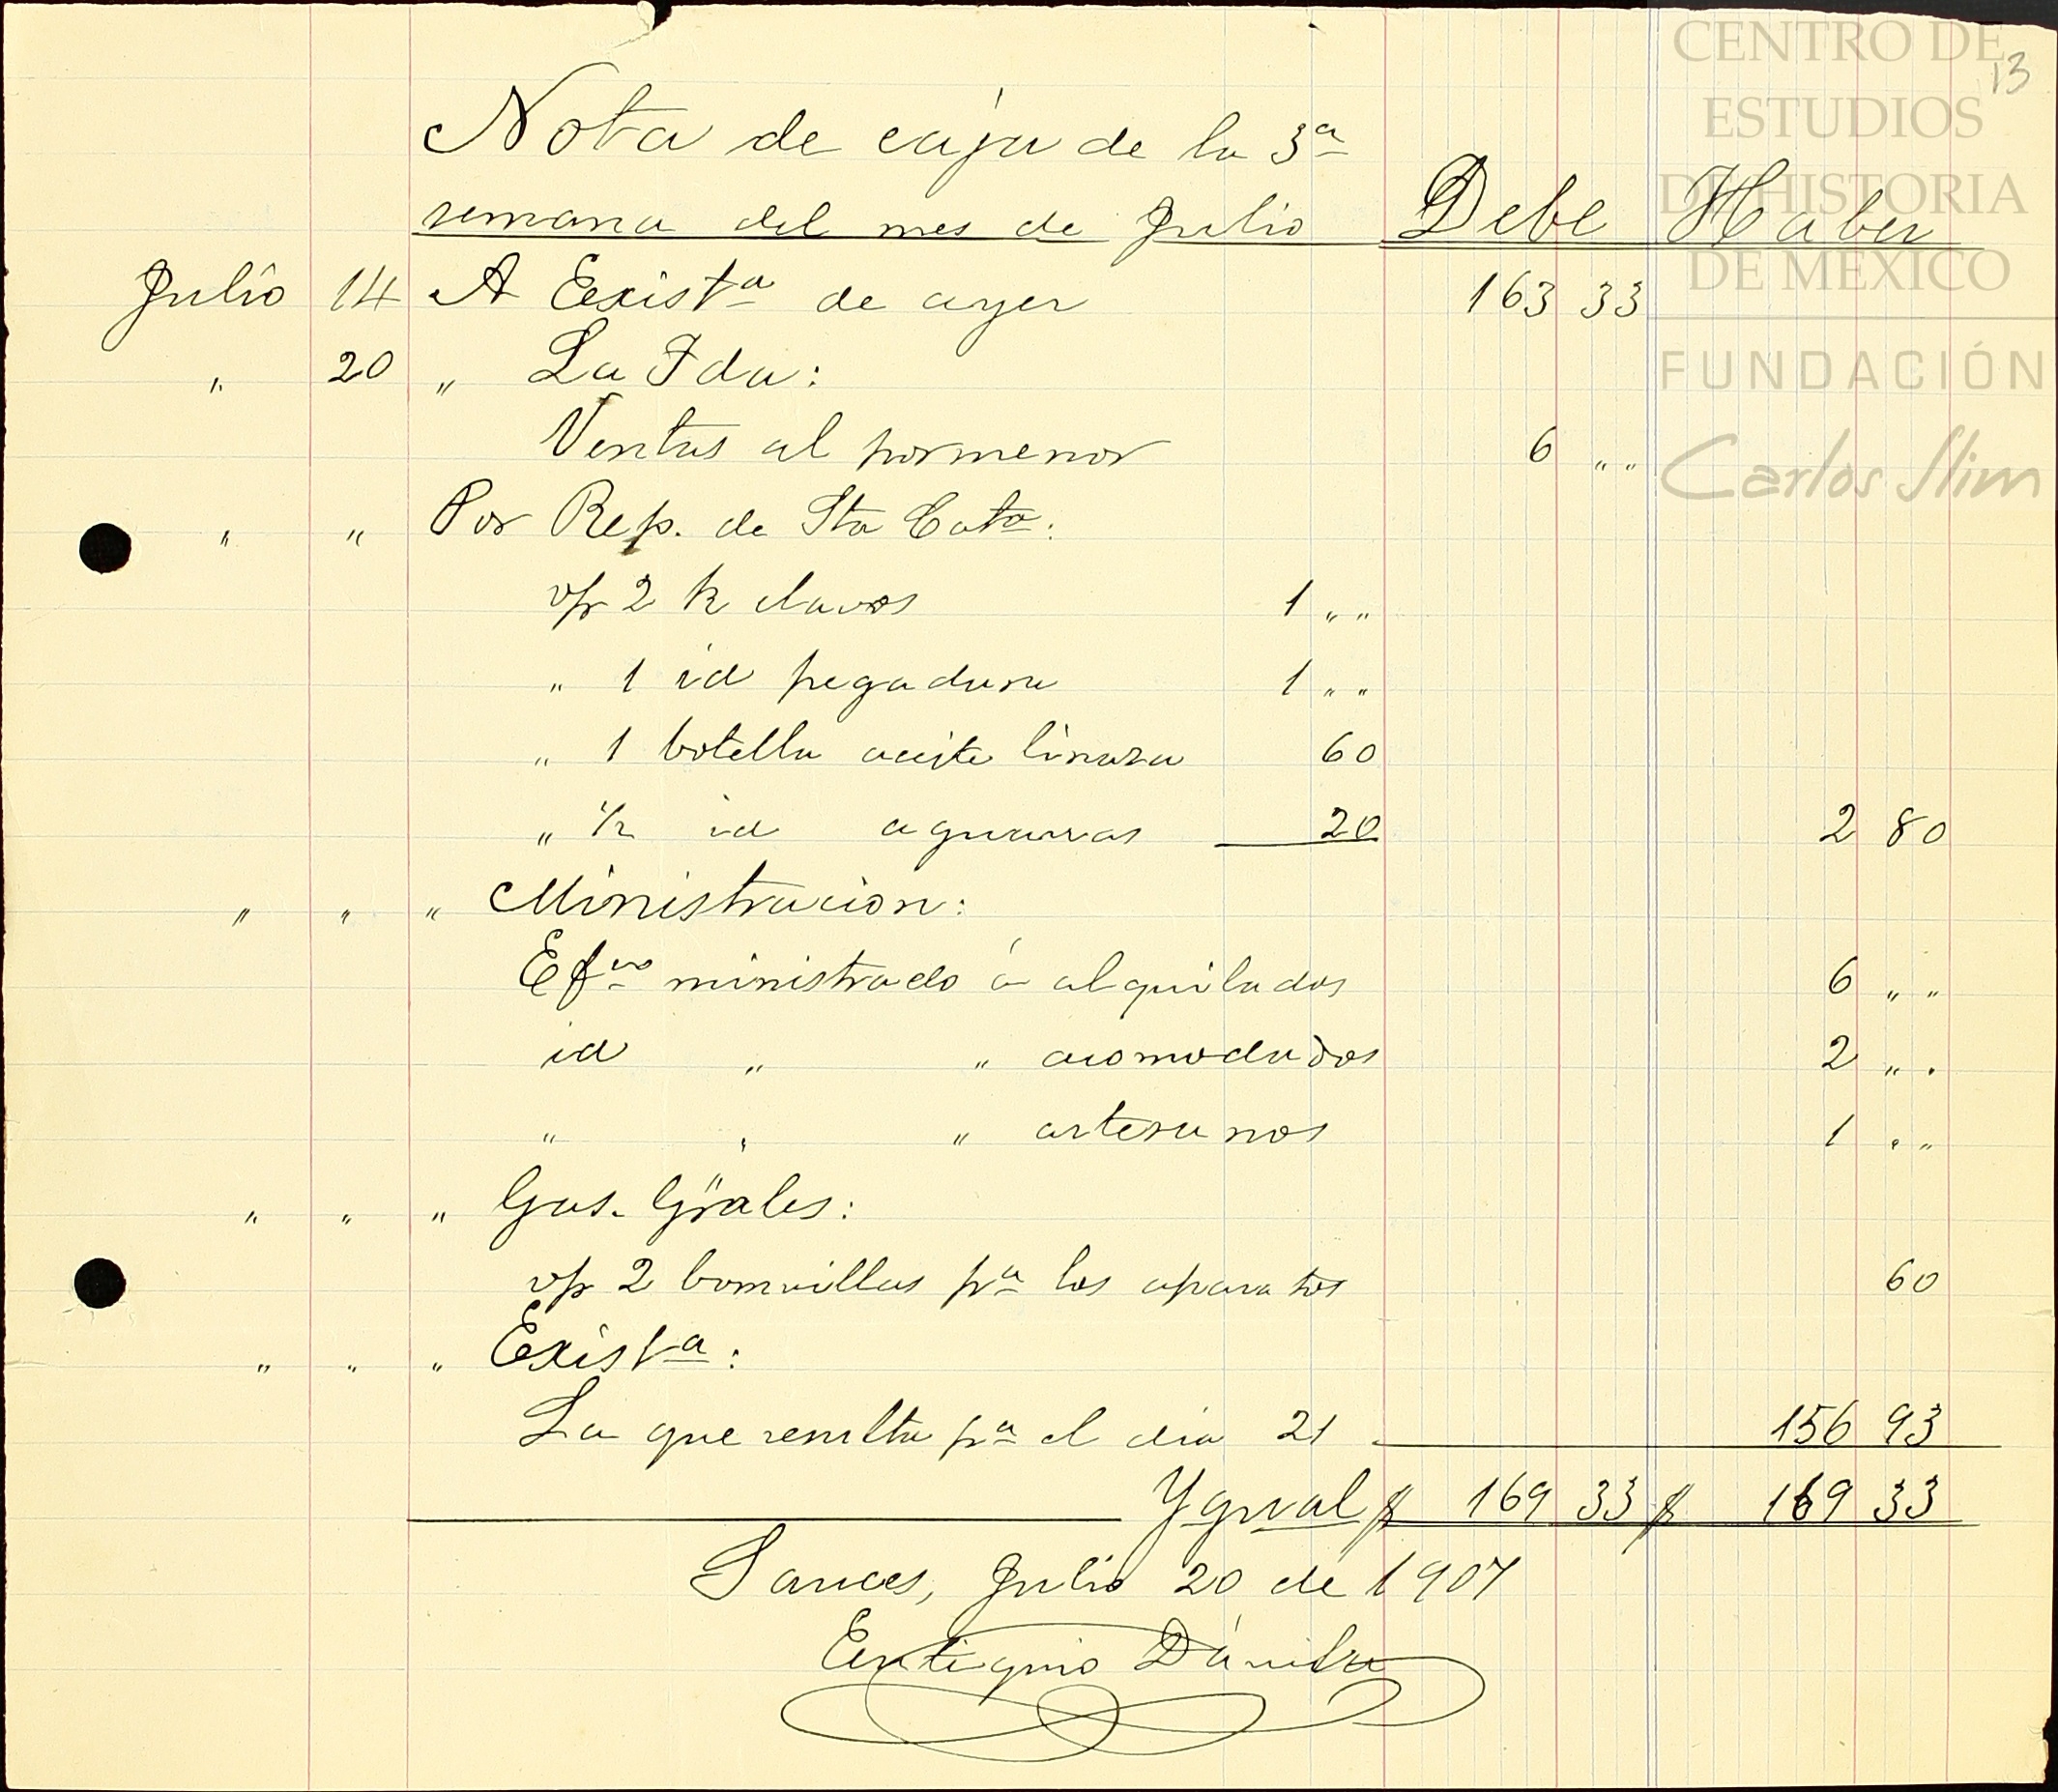 CENTRO DE
ESTUDIOS
DE HISTORIA
DE MÉXICO
FUNDACIÓN
Carlos Slim
13
Nota de caja de la 3ª
semana del mes de Julio Debe Haber
Julio 14 A Existª de ayer 163 33
" 20 " La Ida:
Ventas al pormenor 6 " "
" " Por Rep. de Sta Catª:
v/p 2 k clavos 1 " "
" 1 id pegadura 1 " "
" 1 botella aceite linaza 60
" ½ id aguarras 20 2 80
" " " Ministracion:
Efvo ministrado á alquilados 6 " "
id " " acomodados 2 " "
" " " artesanos 1 " "
" " " Gas. Grales:
v/p 2 bomvillas pª los aparatos 60
" " " Existª:
La que resulta pª el dia 21 156 93
Ygual $ 169 33 $ 169 33
Sauces, Julio 20 de 1907
Eutiquio Dávila